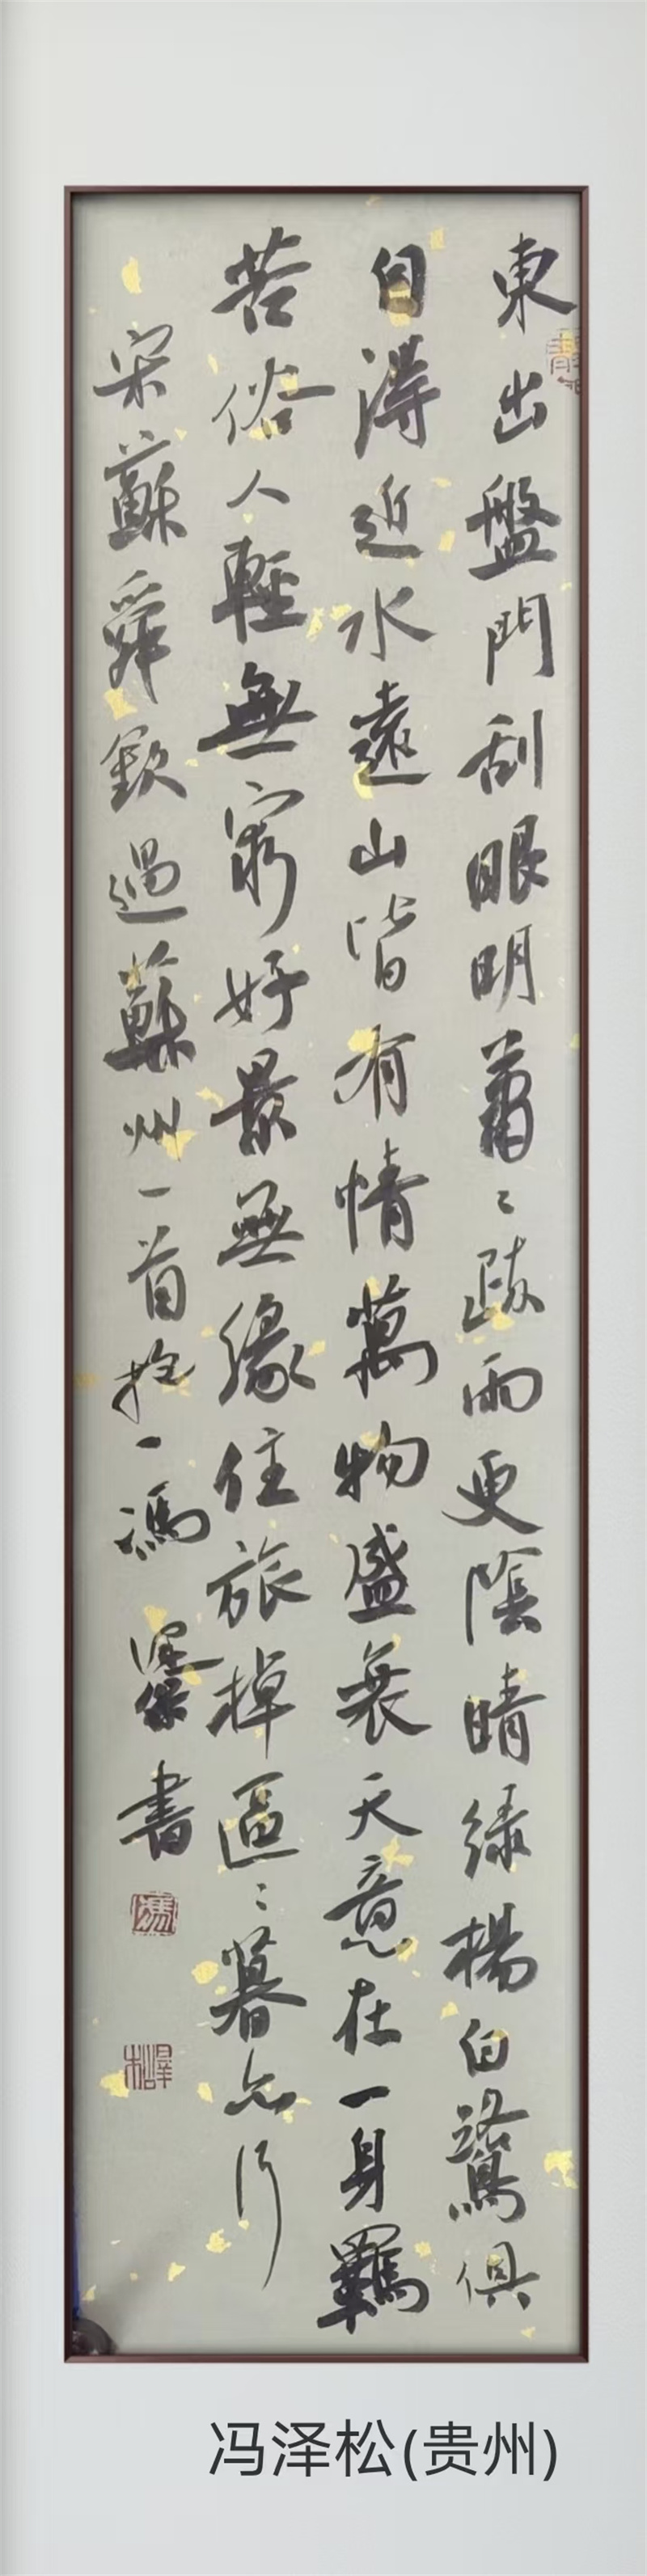 東出盤門刮眼明蕭〻疎雨更陰晴綠楊白鷺俱
自得近水遠山皆有情萬物盛衰天意在一身羈
苦俗人輕無窮好景無緣住旅棹區〻暮亦行
宋蘇舜欽過蘇州一首 馮澤松書
馮
澤松
冯泽松(贵州)